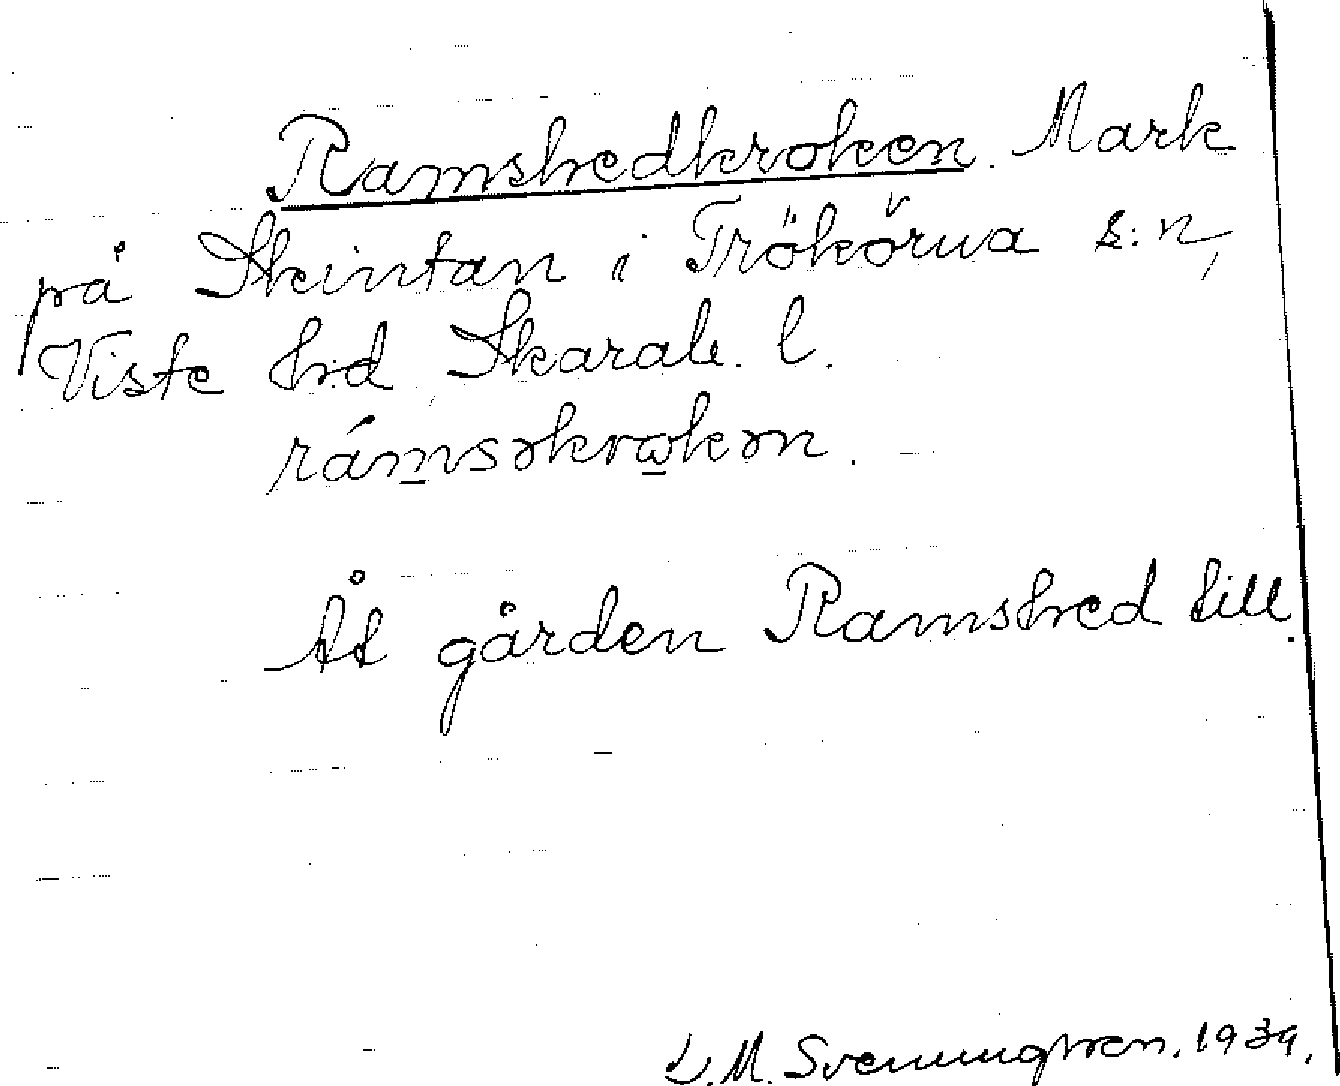 Ramshedkroken. Mark
på Skintan i Trökörna s:n,
Viste hrd Skarab. l.
rámsəkrωkən.
Åt gården Ramshed till.
L.M. Svenungsson. 1939.